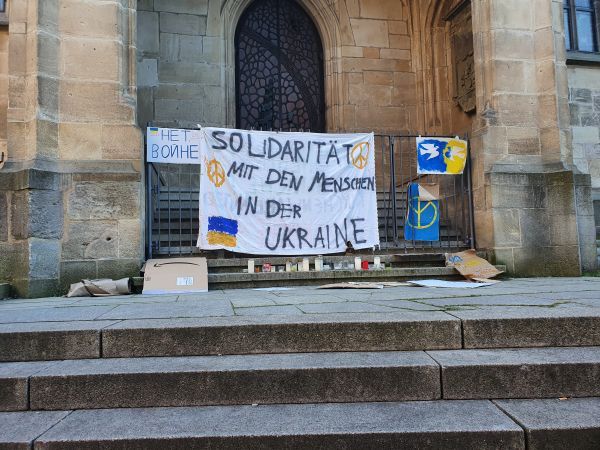 НЕТ
ВОЙНЕ
SOLIDARITÄT
MIT DEN MENSCHEN
IN DER
UKRAINE